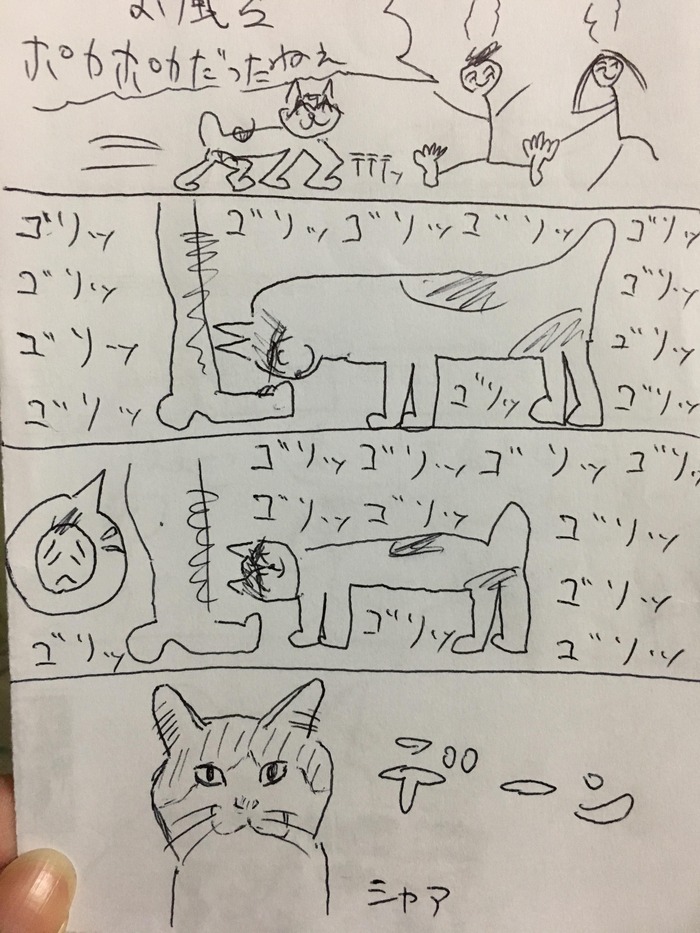 お風呂
ポカポカだったねぇ
テテテッ
ゴリッ ゴリッ ゴリッ ゴリッ ゴリッ
ゴリッ ゴリッ
ゴリッ ゴリッ
ゴリッ ゴリッ ゴリッ
ゴリッ ゴリッ ゴリッ ゴリッ
ゴリッ ゴリッ ゴリッ
ゴリッ
ゴリッ ゴリッ ゴリッ
デーン
シャア